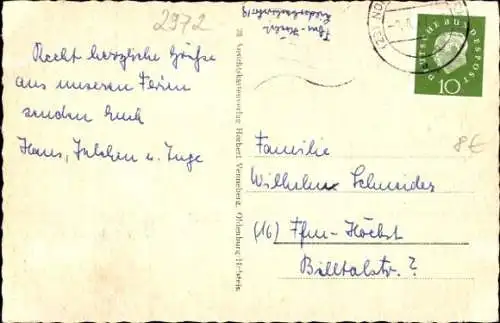 2972
Recht herzliche Grüße
aus unseren Ferien
senden Euch
Hans, u. Inge
Ansichtskartenverlag Herbert Venneberg, Oldenburg/Holstein.
(23) NO
DEUTSCHE BUNDESPOST
10
8€
Familie
Wilhelm Schneider
(16) Ffm-Höchst
Billtalstr. ?